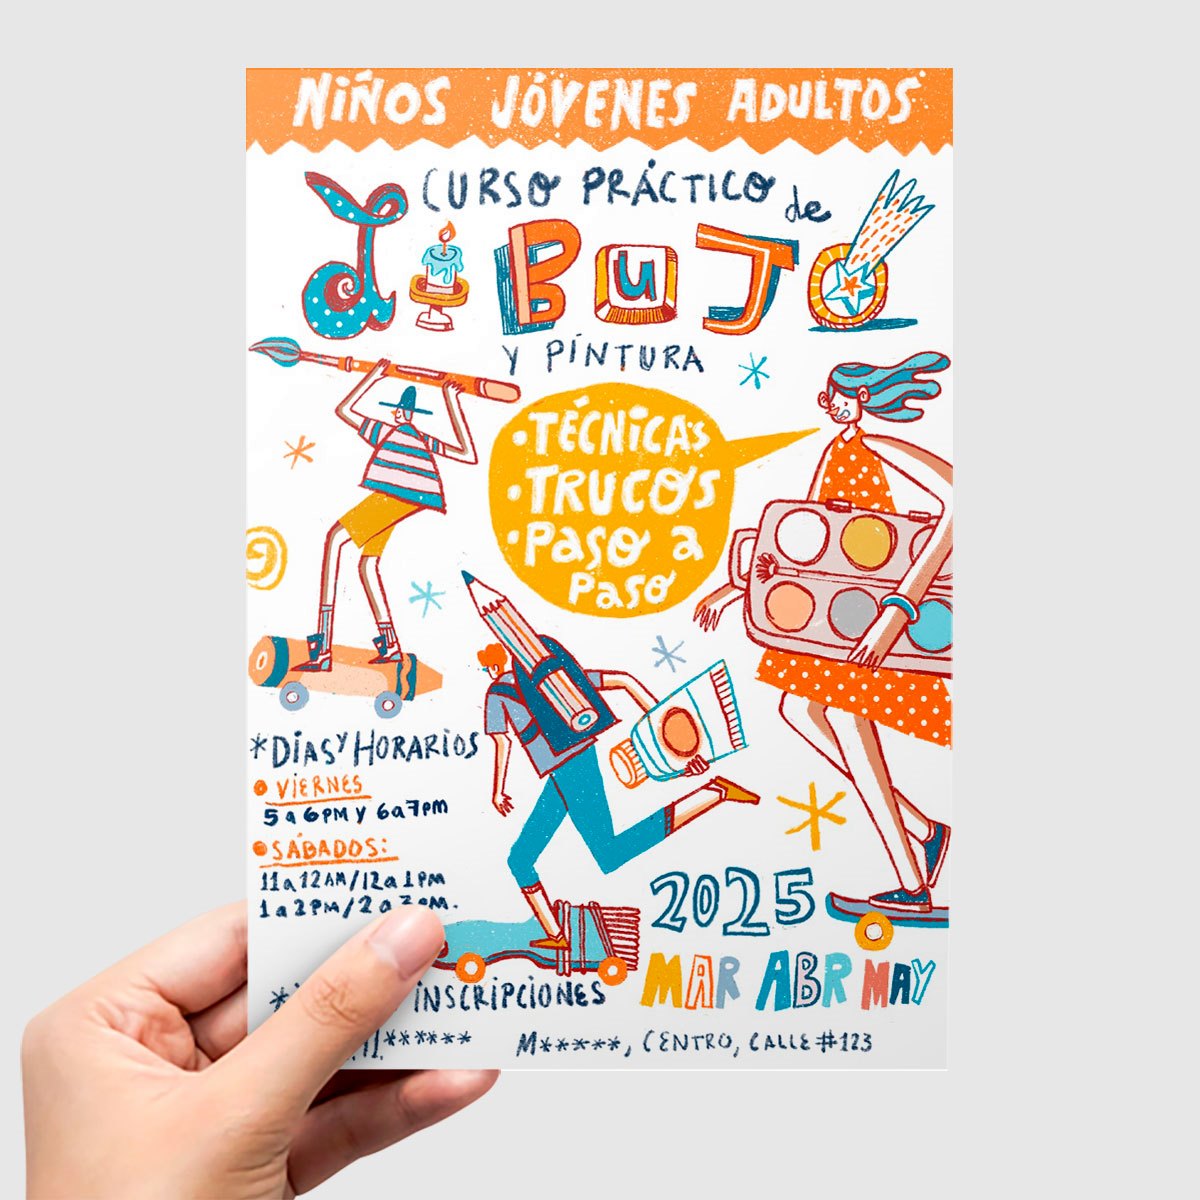 NIÑOS JÓVENES ADULTOS
CURSO PRÁCTICO de
diBUJO
Y PINTURA
• TÉCNICAS
• TRUCOS
• PASO A
PASO
*DÍAS Y HORARIOS
• VIERNES
5 a 6PM y 6 a 7PM
• SÁBADOS:
11 a 12AM / 12 a 1PM
1 a 2PM / 2 a
2025
MAR ABR MAY
INSCRIPCIONES
M*****, CENTRO, CALLE #123